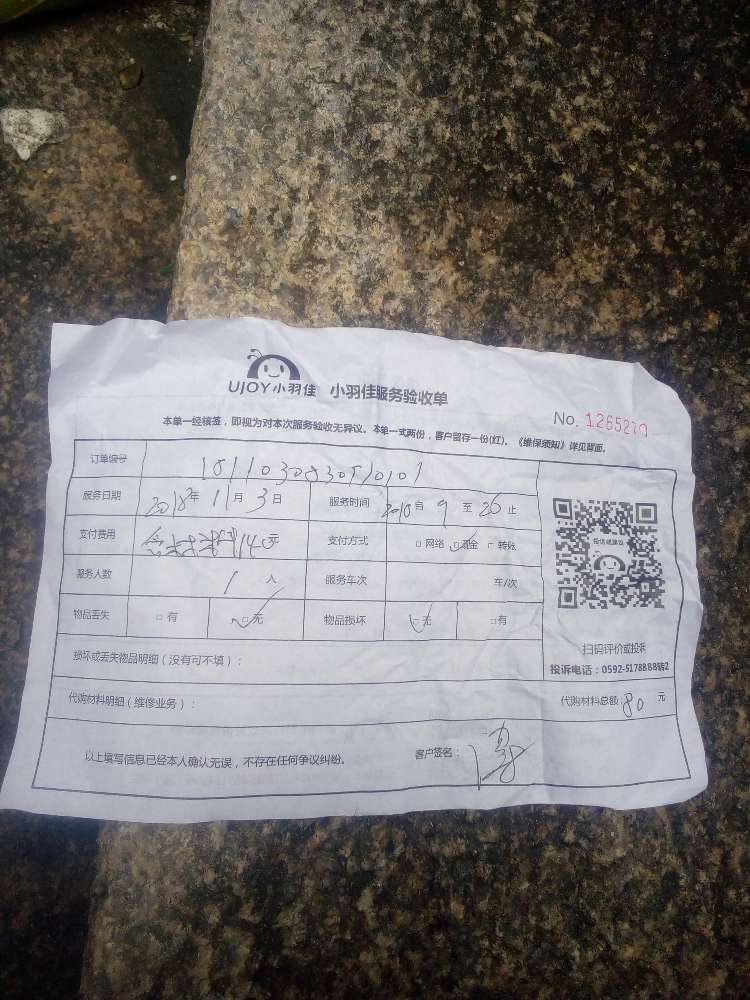 UJOY小羽佳 小羽佳服务验收单
No. 1265279
本单一经横签，即视为对本次服务验收无异议。本单一式两份，客户留存一份(红)。《维保须知》详见背面。
订单编号
服务日期 2018年 11月 3日 服务时间 自 9 至 止
支付费用 含材料140元 支付方式 □网络 □现金 □转账
服务人数 1 人 服务车次 车/次
物品丢失 □有 □无 物品损坏 □无 □有
投诉或建议
扫码评价或投诉
投诉电话：0592-5178888转2
损坏或丢失物品明细（没有可不填）：
代购材料明细（维修业务）： 代购材料总额：80 元
以上填写信息已经本人确认无误，不存在任何争议纠纷。 客户签名：